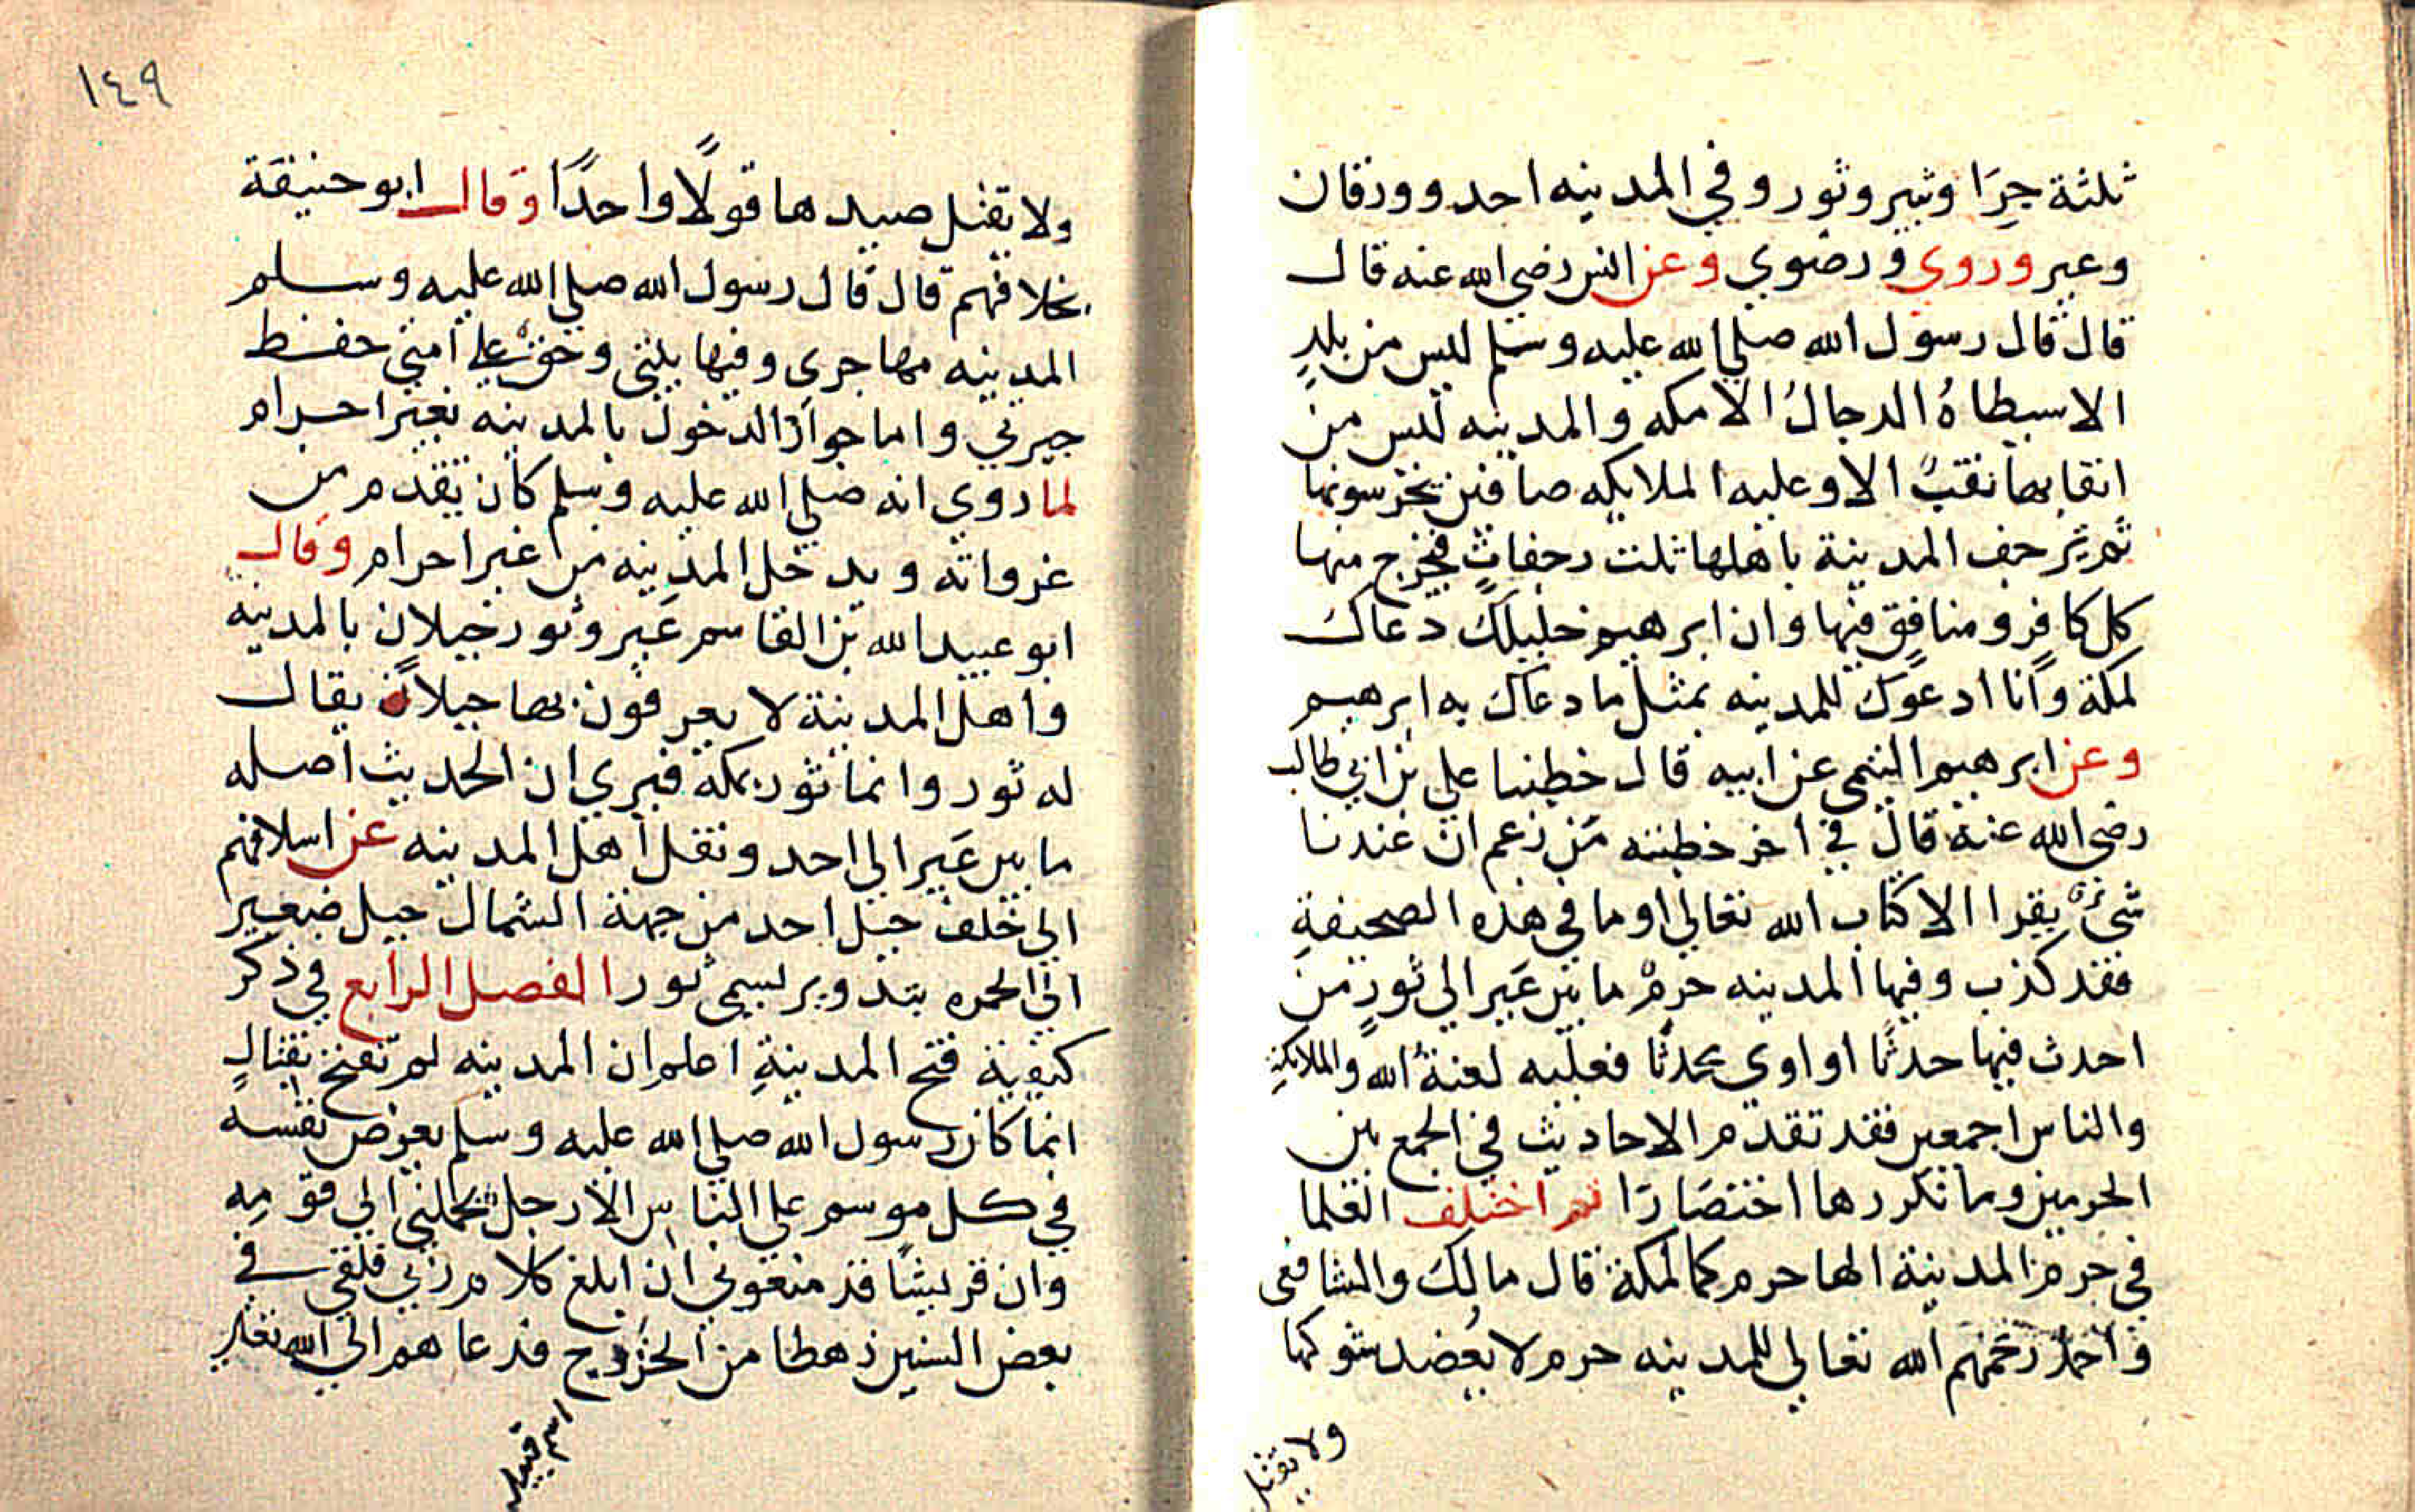 ثلثة حِرَا وثبير وثور وفي المدينه احد وورقان
وعير وروي ورضوي وعن انس رضي الله عنه قال
قال قال رسول الله صلي الله عليه وسلم ليس من بلدٍ
الا سيطاهُ الدجالُ الا مكه والمدينه ليس من
انقابها نقبٌ الا وعليه الملايكه صافين يحرسونها
ثم ترجف المدينة باهلها ثلث رجفاتٍ فيخرج منها
كل كافرٍ ومنافقٍ فيها وان ابرهيم خليلك دعاك
لمكة وانا ادعوك للمدينه بمثل ما دعاك به ابرهيم
وعن ابرهيم التيمي عن ابيه قال خطبنا علي بن ابي طالب
رضي الله عنه قال في اخر خطبته مَن زعم ان عندنا
شيءٌ يقرا الا كتاب الله تعالي او ما في هذه الصحيفةِ
فقد كذب وفيها المدينه حرمٌ ما بين عَير الي ثورٍ من
احدث فيها حدثًا او اوي محدثًا فعليه لعنةُ الله والملايكةِ
والناس اجمعين فقد تقدم الاحاديث في الجمع بين
الحرمين وما نكررها اختصَارًا ثم اختلف العلما
في حرم المدينة الها حرم كما لمكة قال مالك والشافعي
واحمدُ رحمهم الله تعالي للمدينه حرم لا يُعضد شوكها
ولا يقتل
١٤٩
ولا يقتل صيدها قولًا واحدًا وقال ابو حنيفة
بخلافهم قال قال رسول الله صلي الله عليه وسلم
المدينه مهاجري وفيها بيتي وحقٌ علي امتي حفظ
جيرتي واما جواز الدخول بالمدينه بغير احرام
لما روي انه صلي الله عليه وسلم كان يقدم من
غزواته ويدخل المدينه من غير احرام وقال
ابو عبيد الله بن القاسم عَير وثور جبلان بالمدينه
واهل المدينة لا يعرفون بها جبلاً يقال
له ثور وانما ثور بمكة فيري ان الحديث اصله
ما بين عَير الي احد ونقل اهل المدينه عن اسلافهم
الي خلف جبل احد من جهة الشمال جبل صغير
الي الحمره بتدوير يسمي ثور الفصل الرابع في ذكر
كيفية فتح المدينةِ اعلم ان المدينه لم تفتح بقتالٍ
انما كان رسول الله صلي الله عليه وسلم يعرض نفسه
في كل موسم علي الناس الا رجل يحملني الي قومه
وان قريشًا قد منعوني ان ابلغ كلام ربي فلقي في
بعض السنين رهطا من الخزرج فدعاهم الي الله تعالي
اسم قبيله